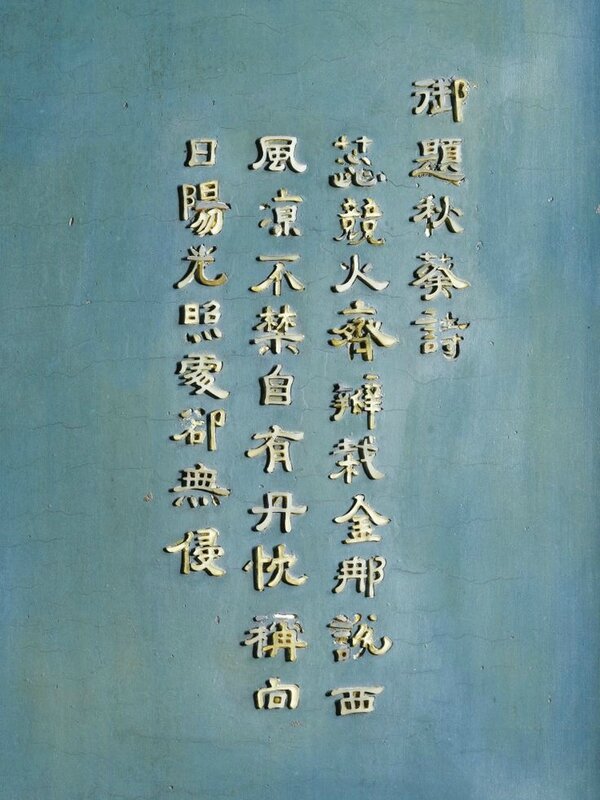 御題秋葵詩
蕋競火齊瓣栽金那說西
風凉不禁自有丹忱稱向
日陽光照處卻無侵